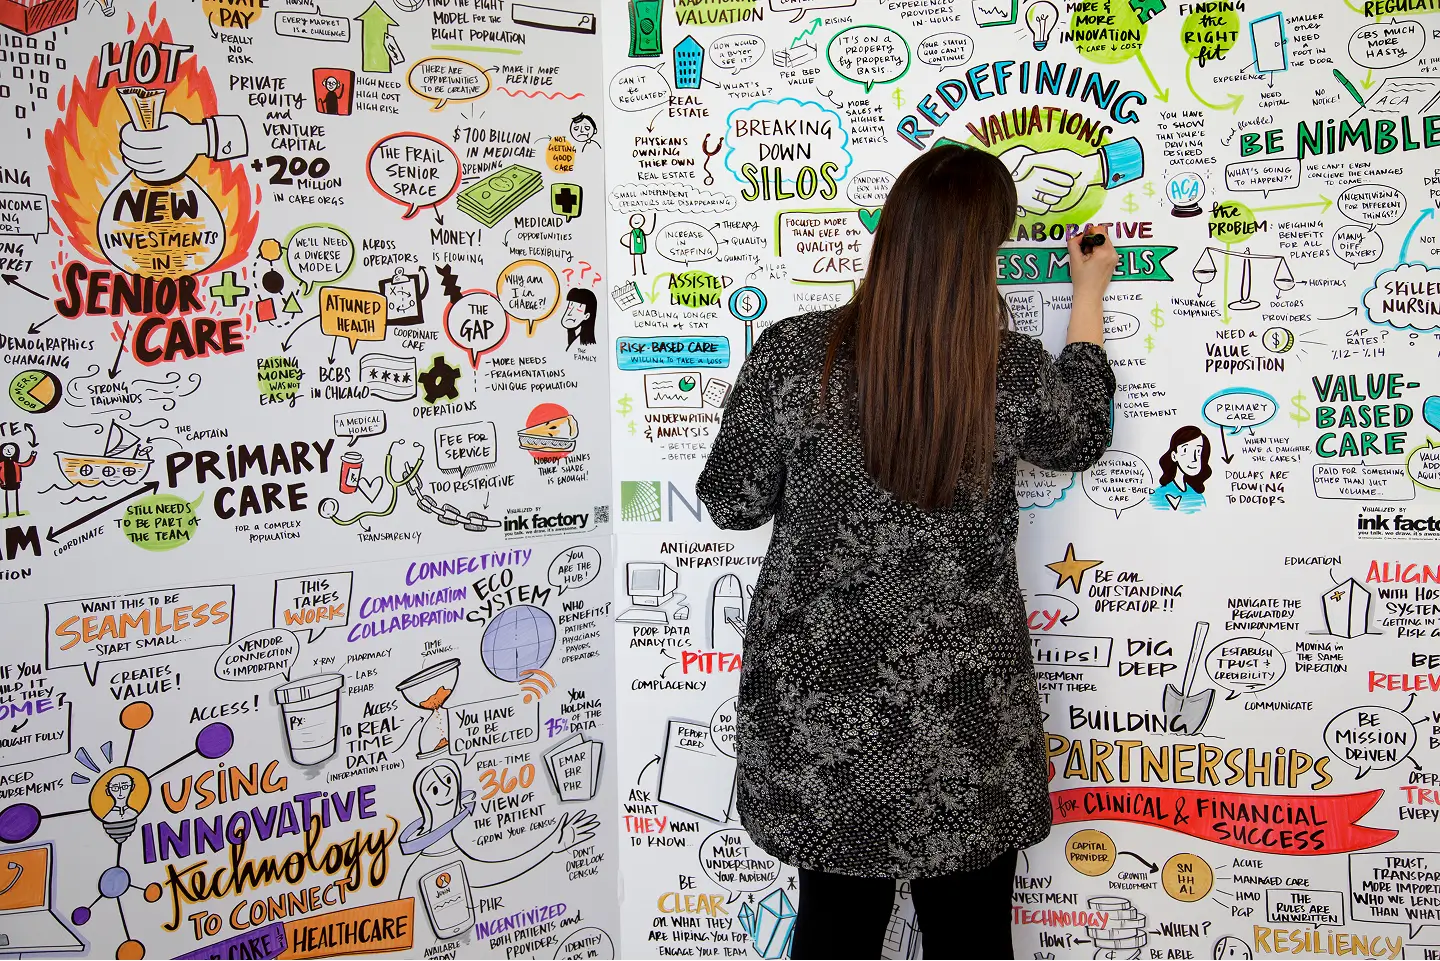 PRIVATE
PAY
REALLY
NO
RISK
EVERY MARKET
IS A CHALLENGE
FIND THE RIGHT
MODEL FOR THE
RIGHT POPULATION
HOT
NEW
INVESTMENTS
IN
SENIOR
CARE
PRIVATE
EQUITY
and
VENTURE
CAPITAL
+200
MILLION
IN CARE ORGS
HIGH NEED
HIGH COST
HIGH RISK
THERE ARE
OPPORTUNITIES
TO BE CREATIVE
MAKE IT MORE
FLEXIBLE
THE FRAIL
SENIOR
SPACE
$700 BILLION
IN MEDICARE
SPENDING
NOT
GETTING
GOOD
CARE
MONEY!
IS FLOWING
MEDICAID
OPPORTUNITIES
MORE FLEXIBILITY
WE'LL NEED
A DIVERSE
MODEL
ACROSS
OPERATORS
ATTUNED
HEALTH
COORDINATE
CARE
THE
GAP
WHY AM
I IN
CHARGE?!
???
THE
FAMILY
INCOME
DEMOGRAPHICS
CHANGING
STRONG
TAILWINDS
RAISING
MONEY
WAS NOT
EASY
BCBS
IN CHICAGO
****
OPERATIONS
- MORE NEEDS
- FRAGMENTATIONS
- UNIQUE POPULATION
THE
CAPTAIN
PRIMARY
CARE
FOR A COMPLEX
POPULATION
STILL NEEDS
TO BE PART OF
THE TEAM
COORDINATE
"A MEDICAL
HOME"
FEE FOR
SERVICE
TOO RESTRICTIVE
TRANSPARENCY
NOBODY THINKS
THEIR SHARE
IS ENOUGH!
VISUALIZED BY
ink factory
you talk. we draw. it's awesome.
TRADITIONAL
VALUATION
RISING
EXPERIENCED
PROVIDERS
IN-HOUSE
HOW WOULD
A BUYER
SEE IT?
WHAT'S
TYPICAL?
PER BED
VALUE
IT'S ON A
PROPERTY
BY PROPERTY
BASIS...
YOUR STATUS
QUO CAN'T
CONTINUE
CAN IT
BE
REGULATED?
REAL
ESTATE
PHYSICIANS
OWNING
THEIR OWN
REAL ESTATE
BREAKING
DOWN
SILOS
MORE
SALES OF
HIGHER
ACUITY
METRICS
PANDORAS
BOX HAS
SMALL INDEPENDENT
OPERATORS ARE DISAPPEARING
INCREASE
IN
STAFFING
THERAPY
QUALITY
QUANTITY
FOCUSED MORE
THAN EVER ON
QUALITY OF
CARE
ASSISTED
LIVING
ENABLING LONGER
LENGTH OF STAY
RISK-BASED CARE
WILLING TO TAKE A LOSS
UNDERWRITING
& ANALYSIS
INCREASE
REDEFINING
VALUATIONS
MORE &
MORE
INNOVATION
↑ CARE ↓ COST
FINDING
the
RIGHT
fit
SMALLER
NEED A
FOOT IN
THE DOOR
EXPERIENCE
NEED
CAPITAL
NO
NOTICE!
ACA
CBS MUCH
MORE
HASTY
YOU HAVE
TO SHOWN
THAT YOU'RE
DRIVING
DESIRED
OUTCOMES
ACA
(and flexible)
BE NIMBLE
WHAT'S GOING
TO HAPPEN??
WE CAN'T EVEN
CONCIEVE THE CHANGES
TO COME...
INCENTIVIZING
FOR DIFFERENT
THINGS?!!
the
PROBLEM:
WEIGHING
BENEFITS
FOR ALL
PLAYERS
MANY
DIFF
PAYERS
HOSPITALS
DOCTORS
PROVIDERS
INSURANCE
COMPANIES
SKILLED
NURSING
NEED A
VALUE
PROPOSITION
CAP
RATES?
%12-%14
SEPARATE
ITEM ON
INCOME
STATEMENT
PRIMARY CARE
WHEN THEY
HAVE A DAUGHTER,
SHE CARES!
DOLLARS ARE
FLOWING
TO DOCTORS
VALUE-
BASED
CARE
PAID FOR SOMETHING
OTHER THAN JUST
VOLUME...
PHYSICIANS
ARE REAPING THE
BENEFITS
OF VALUE-BASED
CARE
VISUALIZED BY
ink facto
WANT THIS TO BE
SEAMLESS
- START SMALL...
THIS
TAKES
WORK
CONNECTIVITY
COMMUNICATION
COLLABORATION
ECO
SYSTEM
YOU
ARE THE
HUB!
WHO
BENEFITS?
PATIENTS
PHYSICIANS
PAYORS
OPERATORS
VENDOR
CONNECTION
IS IMPORTANT
X-RAY
PHARMACY
- LABS
REHAB
TIME
SAVINGS...
CREATES
VALUE!
ACCESS!
Rx:
ACCESS
TO REAL-
TIME
DATA
(INFORMATION FLOW)
YOU HAVE
TO BE
CONNECTED
YOU
HOLDING
75%
OF THE
DATA...
EMAR
EHR
PHR
REAL-TIME
360
VIEW OF
THE PATIENT
- GROW YOUR CENSUS
DON'T
OVERLOOK
CENSUS
USING
INNOVATIVE
technology
TO CONNECT
HEALTHCARE
PHR
AVAILABLE
TODAY
INCENTIVIZED
BOTH PATIENTS and
PROVIDERS
IDENTIFY
ANTIQUATED
INFRASTRUCTU
POOR DATA
ANALYTICS
PITFA
COMPLACENCY
REPORT
CARD
ASK
WHAT
THEY WANT
TO KNOW...
YOU
MUST
UNDERSTAND
YOUR AUDIENCE
BE
CLEAR
ON WHAT THEY
ARE HIRING YOU FOR
ENGAGE YOUR TEAM
BE AN
OUTSTANDING
OPERATOR!!
EDUCATION
ALIGN
WITH HOS
SYSTEM
NAVIGATE THE
REGULATORY
ENVIRONMENT
DIG
DEEP
ESTABLISH
TRUST +
CREDIBILITY
MOVING IN
THE SAME
DIRECTION
COMMUNICATE
BE
RELEV
BE
MISSION
DRIVEN
BUILDING
PARTNERSHIPS
for CLINICAL & FINANCIAL
SUCCESS
CAPITAL
PROVIDER
GROWTH
DEVELOPMENT
SN
HH
AL
ACUTE
MANAGED CARE
HMO
PGP
THE
RULES ARE
UNWRITTEN
TRUST,
TRANSPA
MORE IMPORT
WHO WE LEND
THAN WHAT
HEAVY
INVESTMENT
TECHNOLOGY
HOW?
WHEN?
BE ABLE
RESILIENCY